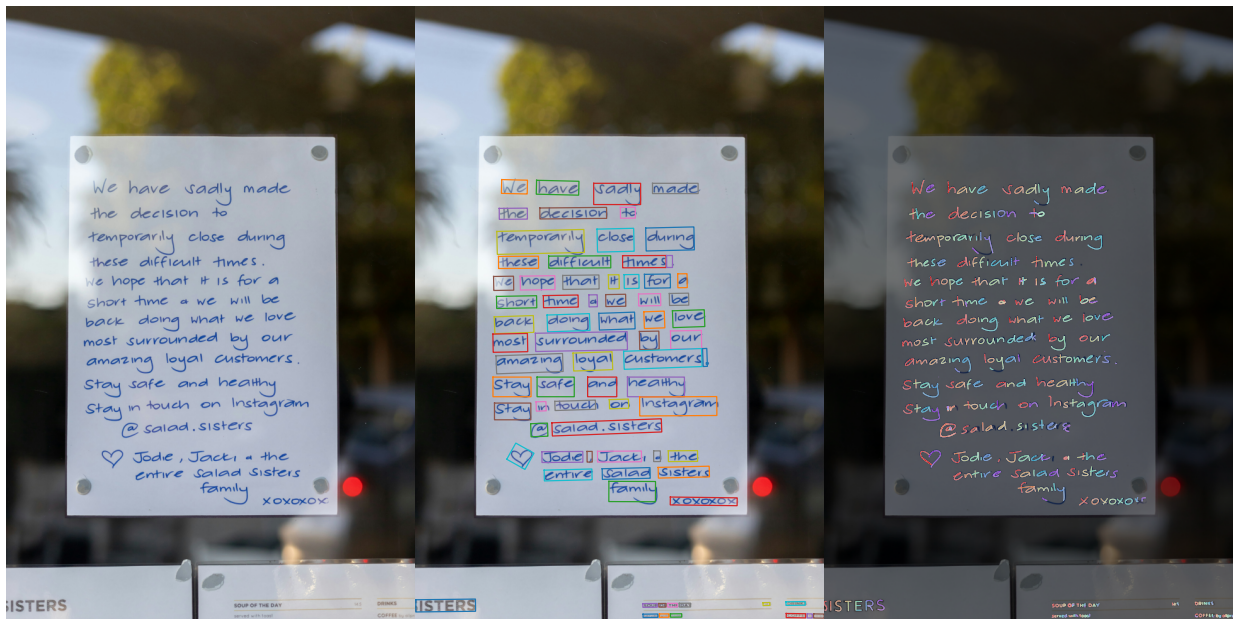 We have sadly made
the decision to
temporarily close during
these difficult times.
We hope that it is for a
short time & we will be
back doing what we love
most surrounded by our
amazing loyal customers.
Stay safe and healthy
Stay in touch on Instagram
@salad.sisters
♡ Jodie, Jacki & the
entire Salad Sisters
family
xoxoxox
SISTERS
SOUP OF THE DAY
served with toast
DRINKS
We have sadly made
the decision to
temporarily close during
these difficult times.
We hope that it is for a
short time & we will be
back doing what we love
most surrounded by our
amazing loyal customers.
Stay safe and healthy
Stay in touch on Instagram
@salad.sisters
♡ Jodie, Jacki & the
entire Salad Sisters
family
xoxoxox
SISTERS
We have sadly made
the decision to
temporarily close during
these difficult times.
We hope that it is for a
short time & we will be
back doing what we love
most surrounded by our
amazing loyal customers.
Stay safe and healthy
Stay in touch on Instagram
@salad.sisters
♡ Jodie, Jacki & the
entire Salad Sisters
family
xoxoxox
SISTERS
SOUP OF THE DAY
served with toast
DRINKS
COFFEE by